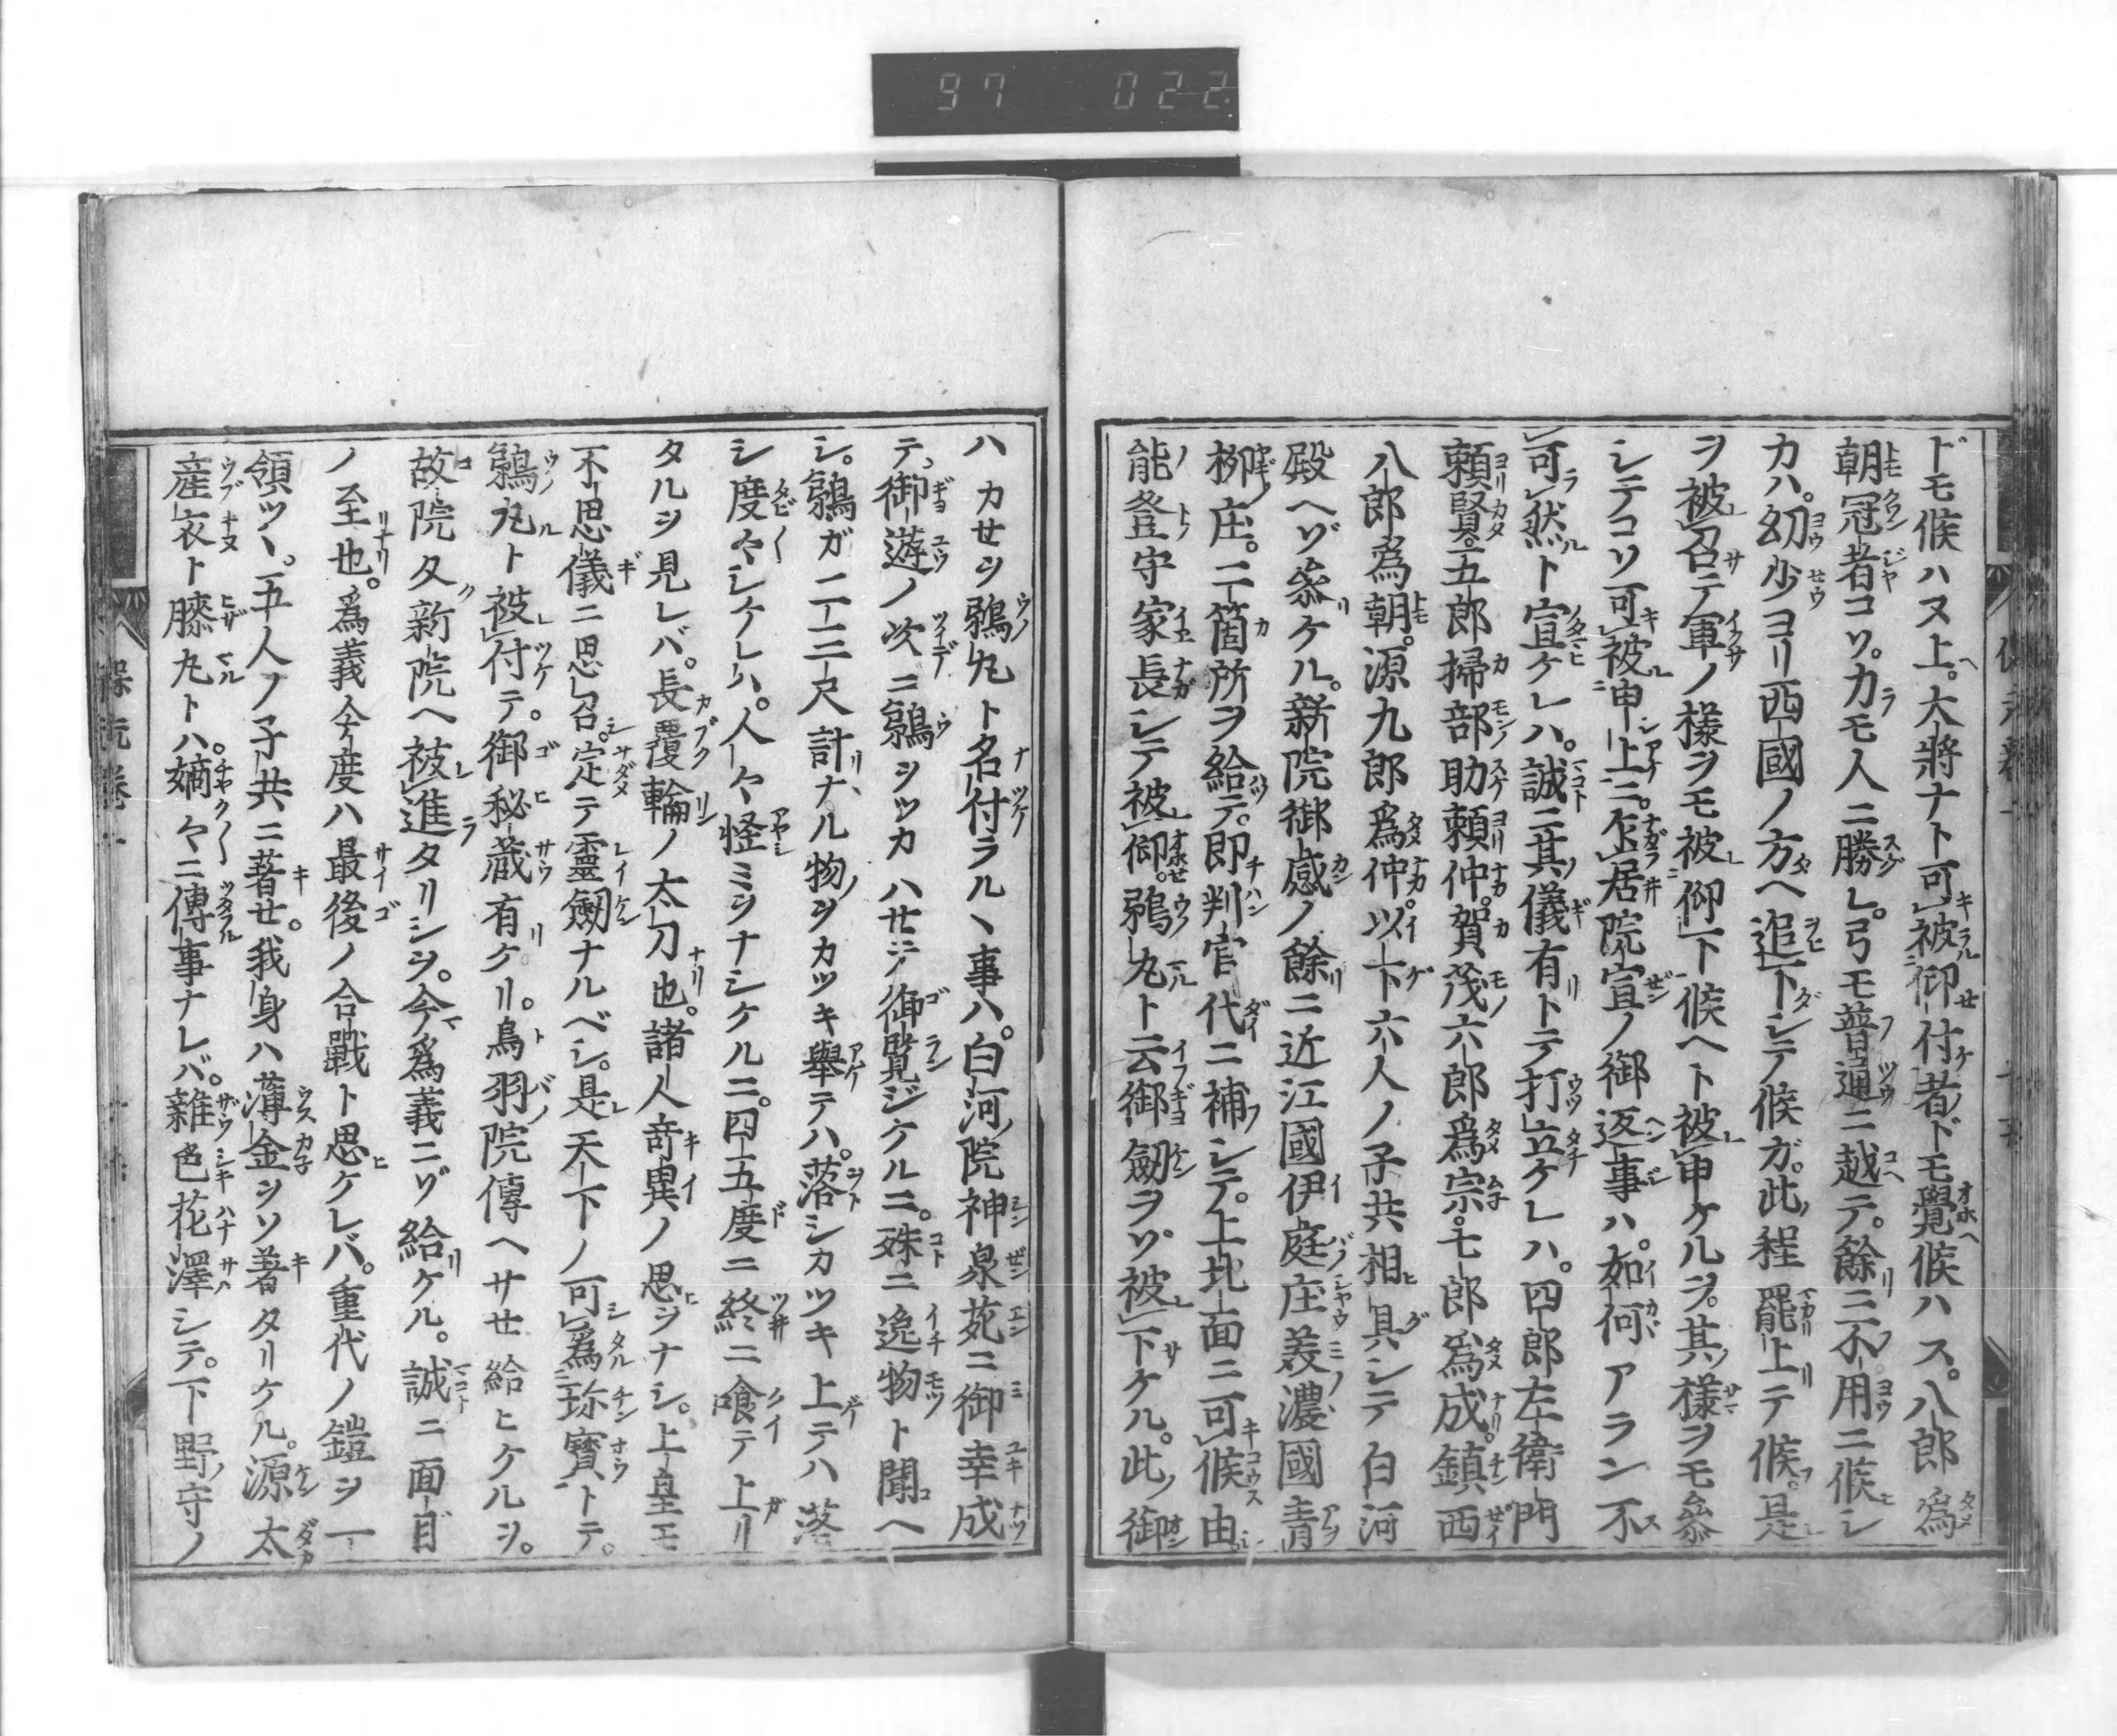 97 022
ドモ候ハヌ上。大將ナト可被仰付者ドモ覺候ハス。八郎爲
朝冠者コソ。力モ人ニ勝レ。弓モ普通ニ越テ。餘ニ不用ニ候シ
カハ。幼少ヨリ西國ノ方ヘ追下シテ候ガ。此程罷上テ候。是
ヲ被召テ軍ノ樣ヲモ被仰下候ヘト被申ケルヲ。其樣ヲモ參
シテコソ可被申上ニ。乍居院宣ノ御返事ハ。如何アラン不
可然ト宣ケレハ。誠ニ其儀有トテ打立ケレハ。四郎左衛門
頼賢。五郎掃部助頼仲。賀茂六郎爲宗。七郎爲成。鎮西
八郎爲朝。源九郎爲仲。以下六人ノ子共相具シテ白河
殿ヘゾ參ケル。新院御感ノ餘ニ近江國伊庭庄美濃國青
柳庄。二箇所ヲ給テ。即判官代ニ補シテ。上北面ニ可候由
能登守家長シテ被仰。鵜丸ト云御劔ヲゾ被下ケル。此御
ハカセヲ鵜丸ト名付ラルヽ事ハ。白河院神泉苑ニ御幸成
テ。御遊ノ次ニ鵜ヲツカハせテ御覽ジケルニ。殊ニ逸物ト聞ヘ
シ。鵜ガ二三尺計ナル物ヲカツキ擧テハ。落シカツキ上テハ落
シ度々シケレハ。人々怪ミヲナシケルニ。四五度ニ終ニ喰テ上リ
タルヲ見レバ。長覆輪ノ太刀也。諸人奇異ノ思ヲナシ。上皇モ
不思儀ニ思召。定テ靈劔ナルベシ。是天下ノ可爲珍寶トテ。
鵜丸ト被付テ。御秘藏有ケリ。鳥羽院傳ヘサせ給ヒケルヲ。
故院又新院ヘ被進タリシヲ。今爲義ニゾ給ケル。誠ニ面目
ノ至也。爲義今度ハ最後ノ合戰ト思ケレバ。重代ノ鎧ヲ一
領ツヽ。五人ノ子共ニ著せ。我身ハ薄金ヲソ著タリケル。源太
産衣ト膝丸トハ。嫡々ニ傳事ナレバ。雜色花澤シテ。下野守ノ